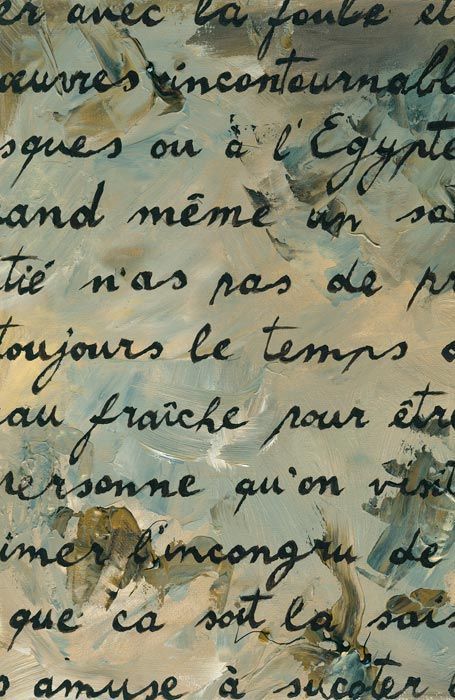 er avec la foule et
œuvres incontournabl
sques ou à l'Egypte
and même un sa
tié n'as pas de pr
toujours le temps o
au fraîche pour être
personne qu'on visit
imer l'incongru de
que ca soit la sais
s amuse à suçoter